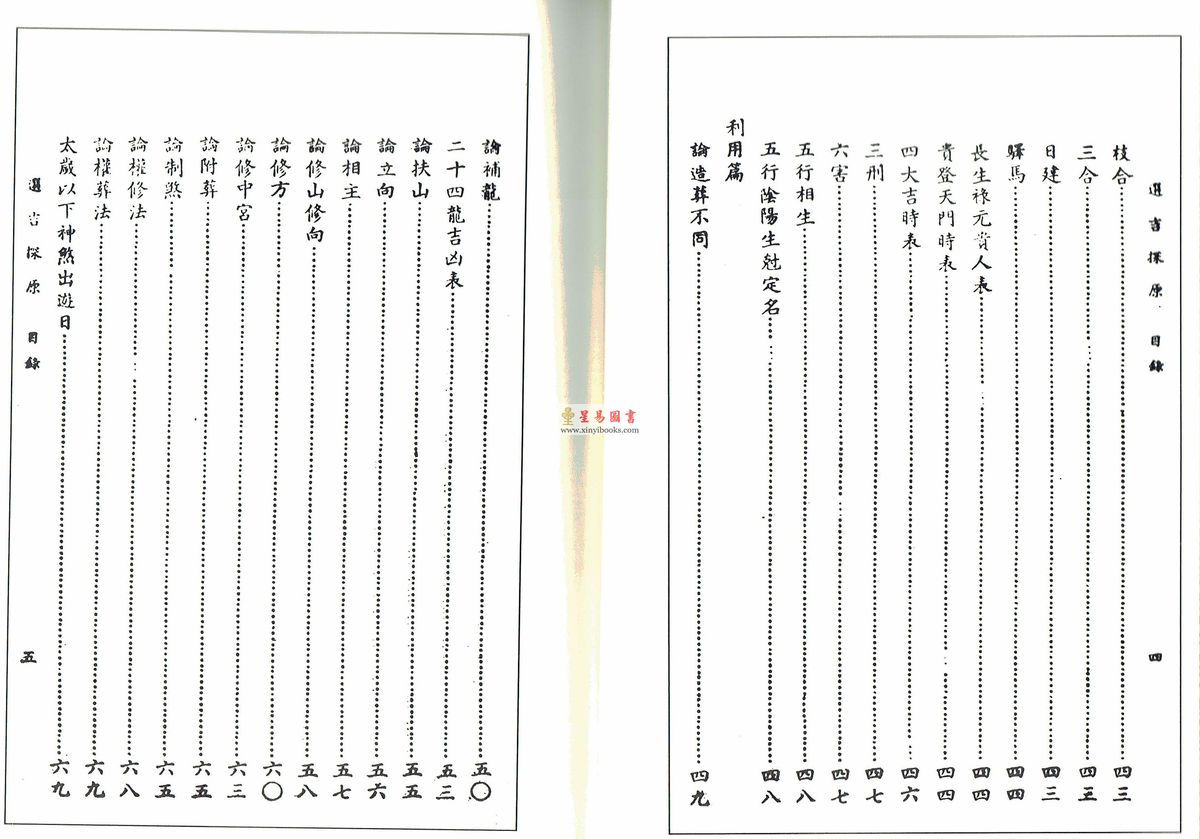 選吉探原 目錄 四
枝合 四三
三合 四五
日建 四三
驛馬 四四
長生祿元貴人表 四四
貴登天門時表 四四
四大吉時表 四六
三刑 四七
六害 四七
五行相生 四八
五行陰陽生尅定名 四八
利用篇
論造葬不同 四九
論補龍 五〇
二十四龍吉凶表 五三
論扶山 五五
論立向 五六
論相主 五七
論修山修向 五八
論修方 六〇
論修中宮 六三
論附葬 六五
論制煞 六五
論權修法 六八
論權葬法 六九
太歲以下神煞出遊日 六九
選吉探原 目錄 五
星易圖書
www.xinyibooks.com